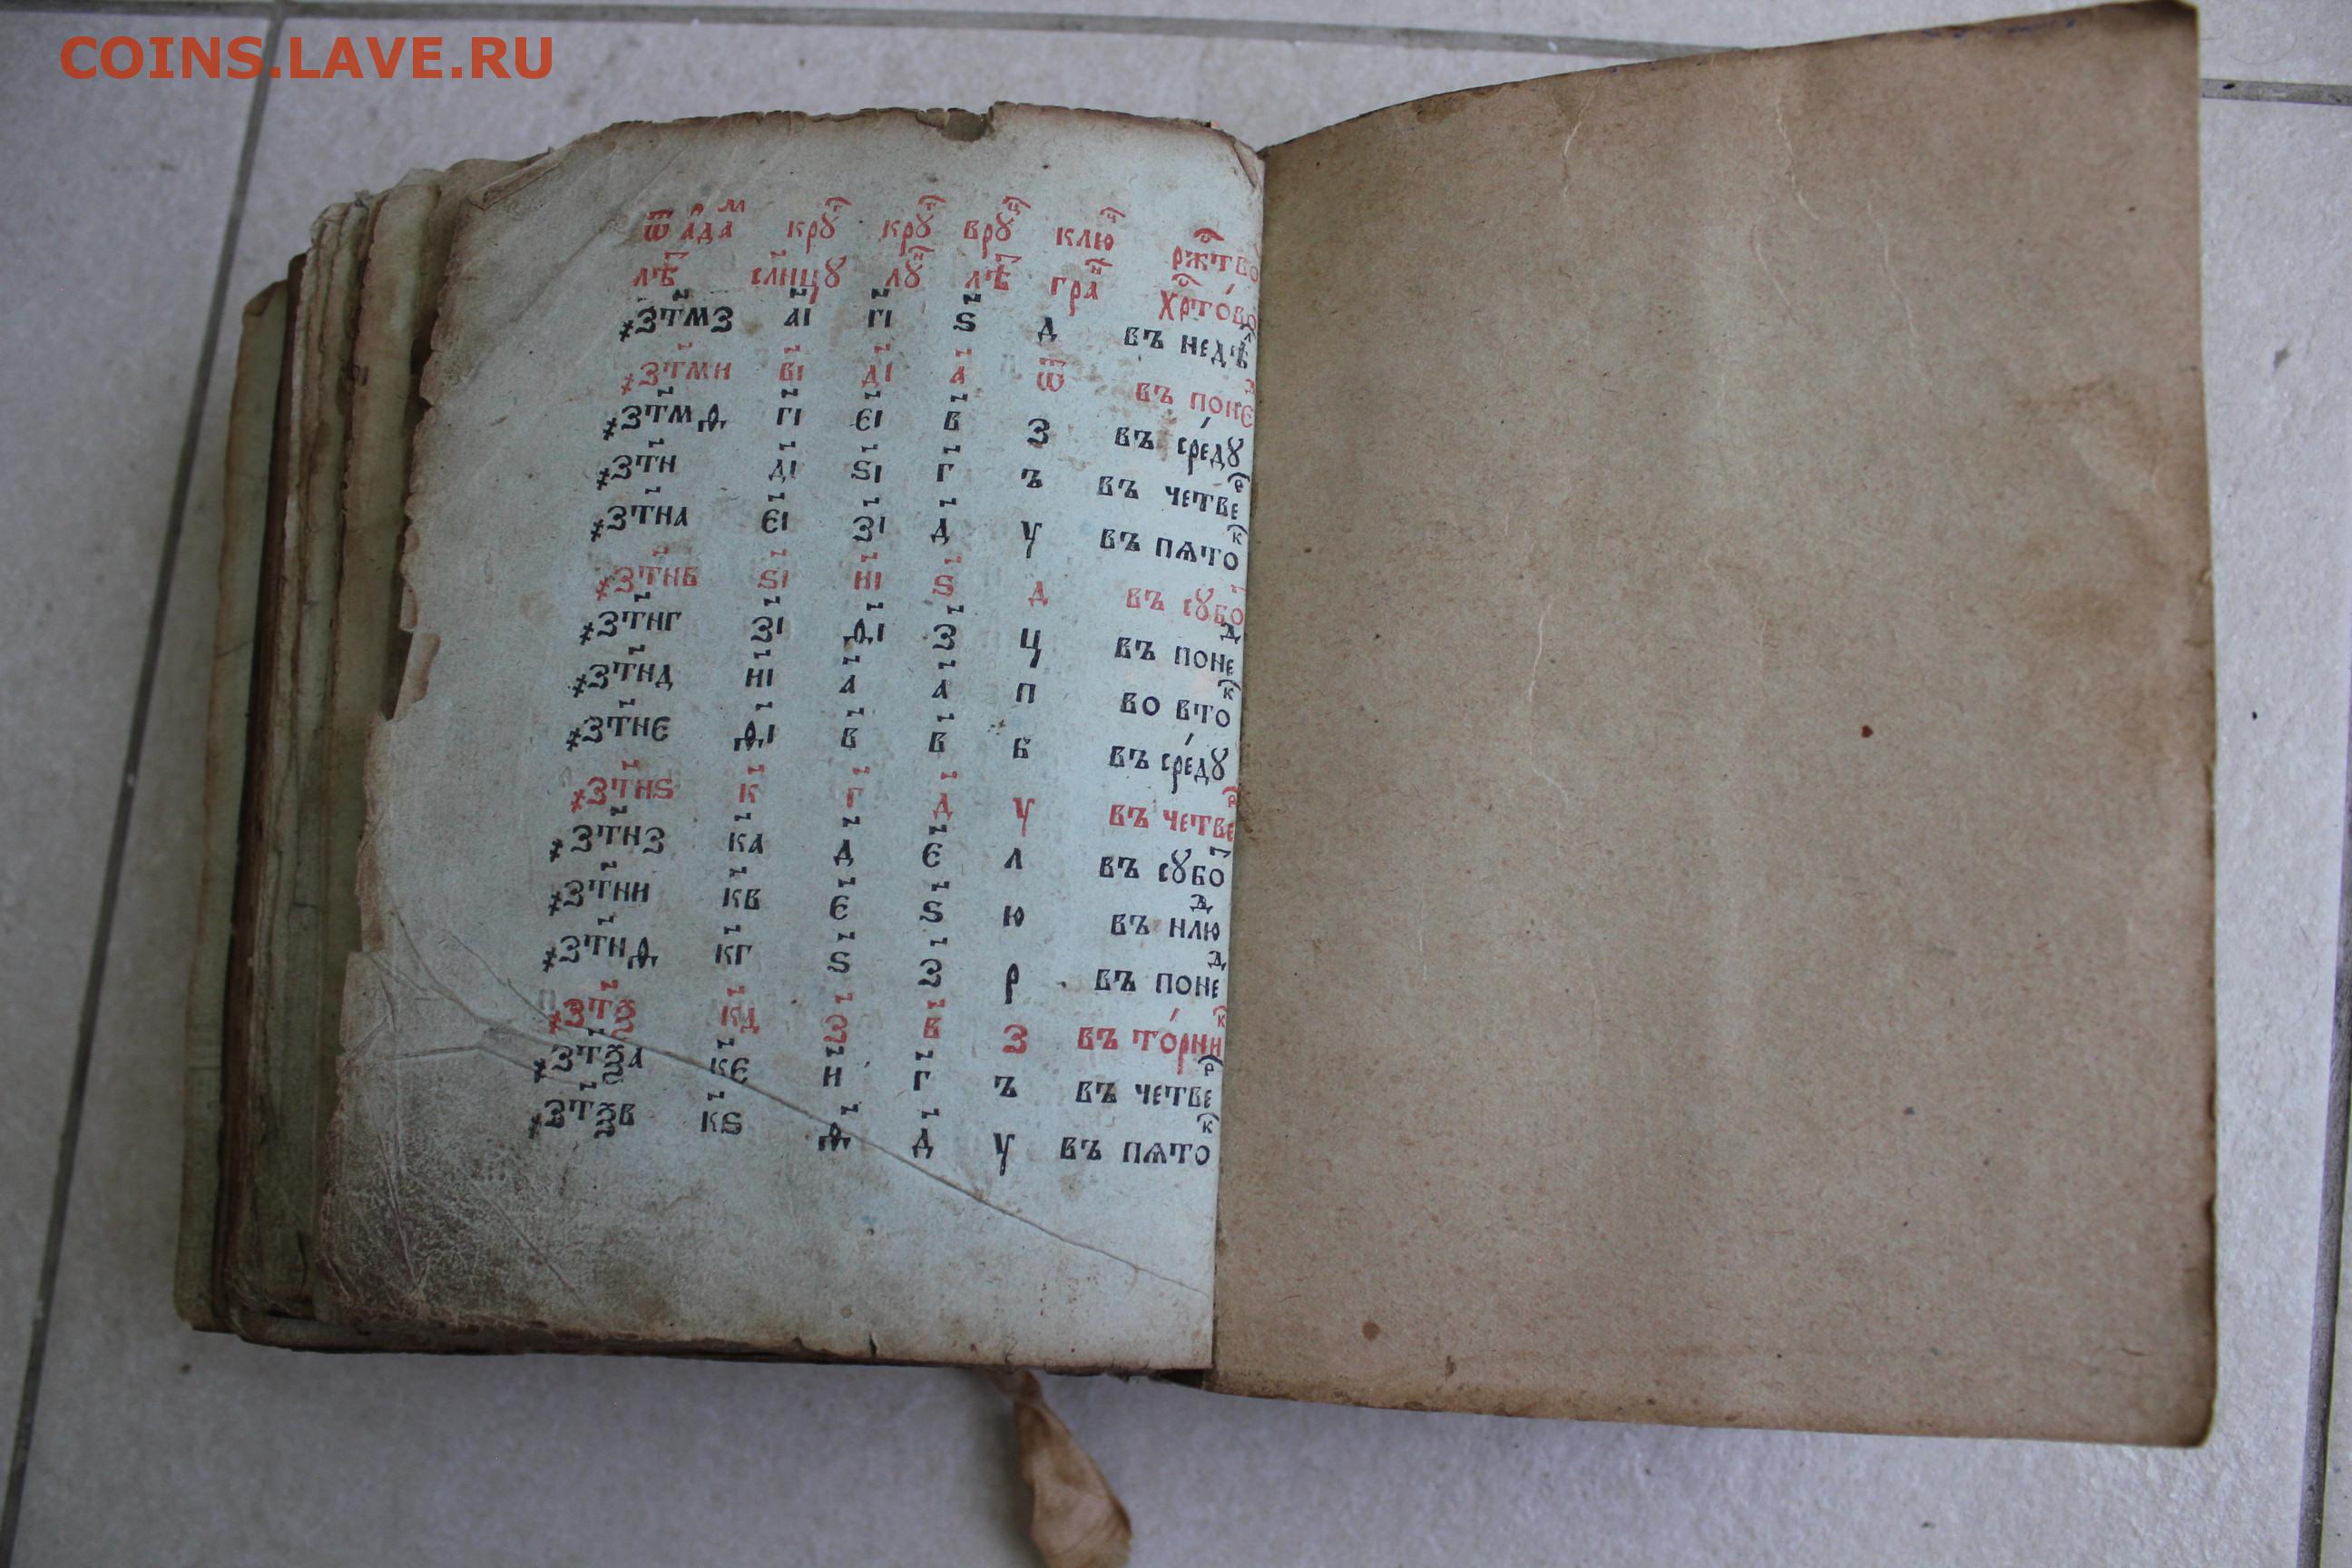 COINS.LAVE.RU
ѿ а҆да ⷨ крꙋ ⷢ крꙋ ⷢ врꙋ ⷰ клю ⷱ рж ⷭтво
лѣ ⷮ сл҃нцꙋ лꙋ ⷩ лѣ ⷮ гра ⷩ хр ⷭто́во
҂зтм҃з а҃і г҃і ѕ҃ д въ недѣ ⷧ
҂зтм҃и в҃і д҃і а҃ ѿ въ поне ⷣ
҂зтм҃ѳ г҃і є҃і в҃ з въ сре́дꙋ
҂зт҃н д҃і ѕ҃і г҃ ъ въ четве ⷬ
҂зтн҃а є҃і з҃і д҃ у въ пѧто ⷦ
҂зтн҃в ѕ҃і и҃і ѕ҃ д въ сꙋбо ⷮ
҂зтн҃г з҃і ѳ҃і з҃ ц въ поне ⷣ
҂зтн҃д и҃і а҃ а҃ п во вто ⷦ
҂зтн҃є ѳ҃і в҃ в҃ б въ сре́дꙋ
҂зтн҃ѕ к҃ г҃ д҃ у въ четве ⷬ
҂зтн҃з к҃а д҃ є҃ л въ сꙋбо ⷮ
҂зтн҃и к҃в є҃ ѕ҃ ю въ нлю ⷣ
҂зтн҃ѳ к҃г ѕ҃ з҃ р въ поне ⷣ
҂зт҃ѯ к҃д з҃ в҃ з въ то́рни ⷦ
҂зтѯ҃а к҃є и҃ г҃ ъ въ четве ⷬ
҂зтѯ҃в к҃ѕ ѳ҃ д҃ у въ пѧто ⷦ